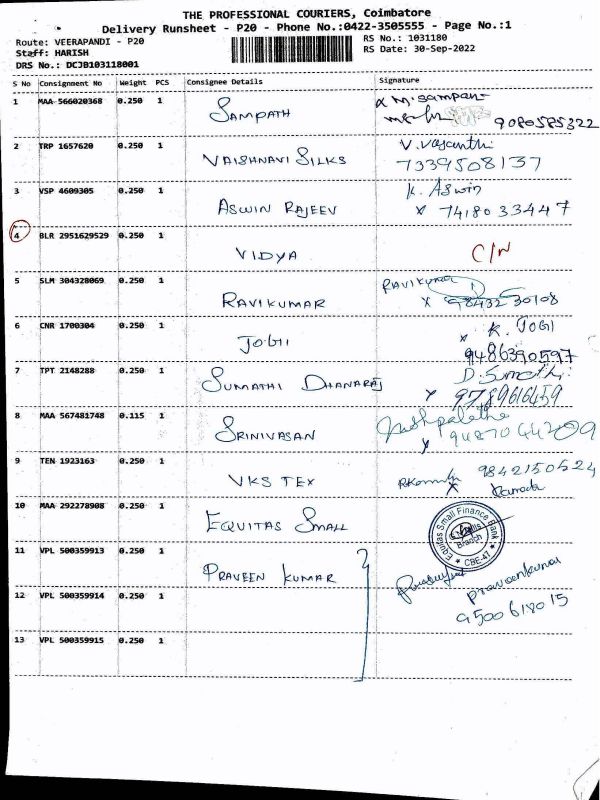 THE PROFESSIONAL COURIERS, Coimbatore
Delivery Runsheet - P20 - Phone No.:0422-3505555 - Page No.:1
Route: VEERAPANDI - P20
RS No.: 1031180
Staff: HARISH
RS Date: 30-Sep-2022
DRS No.: DCJB103118001
S No Consignment No Weight PCS Consignee Details Signature
1 MAA 566020368 0.250 1 SAMPATH M. Sampath
9080585322
2 TRP 1657620 0.250 1 VAISHNAVI SILKS V. Vasanthi
7339508137
3 VSP 4609305 0.250 1 ASWIN RAJEEV K. ASwin
x 7418033447
4 BLR 2951629529 0.250 1 VIDYA C/N
5 SLM 304328069 0.250 1 RAVIKUMAR RAVIKUMAR
x 98432 30108
6 CNR 1700304 0.250 1 JOGII x K. JOGI
9486390597
7 TPT 2148288 0.250 1 SUMATHI DHANARAJ
x 9789616459
8 MAA 567481748 0.115 1 SRINIVASAN Pushpalatha
x 9487044209
9 TEN 1923163 0.250 1 VKS TEX 9842150524
x
10 MAA 292278908 0.250 1 EQUITAS SMALL
Equitas Small Finance Bank
Branch
CBE-47
11 VPL 500359913 0.250 1 PRAVEEN KUMAR
12 VPL 500359914 0.250 1 praveenkumar
9500618015
13 VPL 500359915 0.250 1